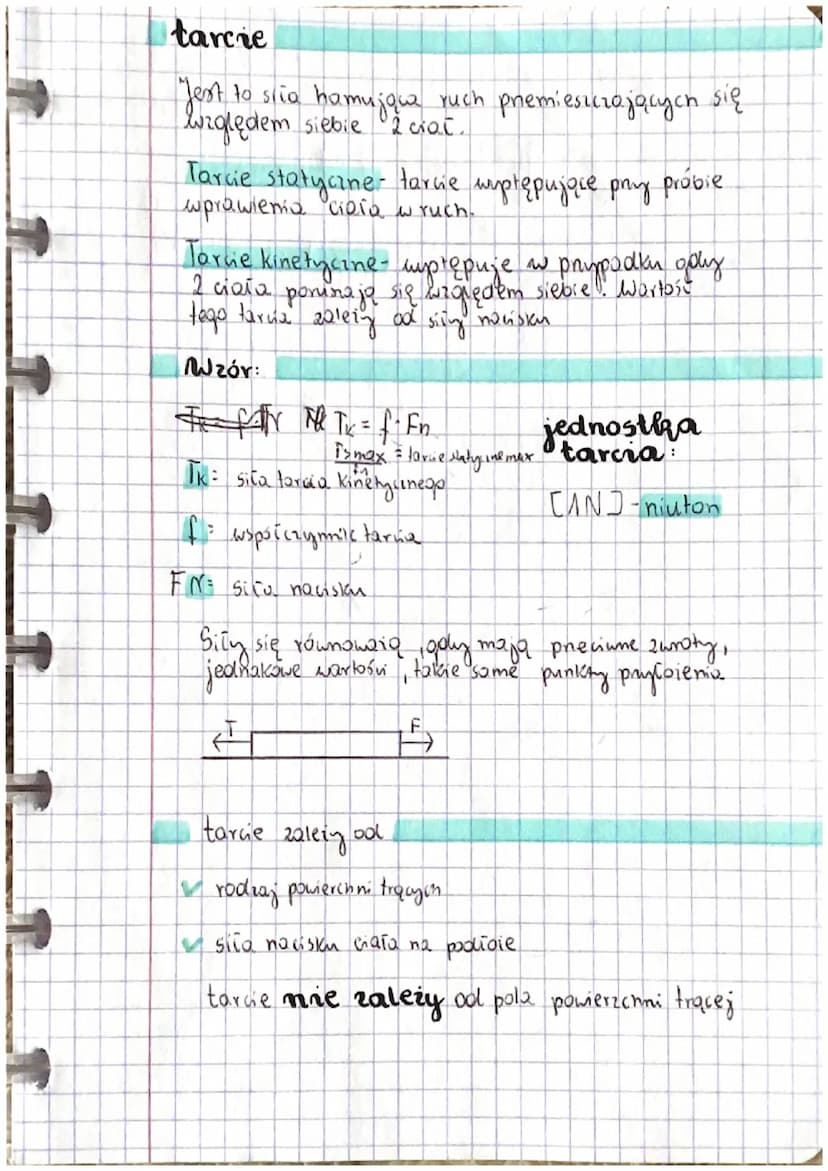 tarcie
Jest to siła hamująca ruch przemieszczających się
względem siebie 2 ciał.
Tarcie statyczne - tarcie występujące przy próbie
wprawienia ciała w ruch.
Tarcie kinetyczne - występuje w przypadku gdy
2 ciała poruszają się względem siebie. Wartość
tego tarcia zależy od siły nacisku
Wzór:
Tk = f · Fn
Tsmax = tarcie statyczne max
jednostka
tarcia:
Tk = siła tarcia kinetycznego
[1N] - niuton
f = współczynnik tarcia
FN = siła nacisku
Siły się równoważą, gdy mają przeciwne zwroty,
jednakowe wartości, takie same punkty przyłożenia
T F
tarcie zależy od
✓ rodzaj powierzchni trących
✓ siła nacisku ciała na podłoże
tarcie nie zależy od pola powierzchni trącej